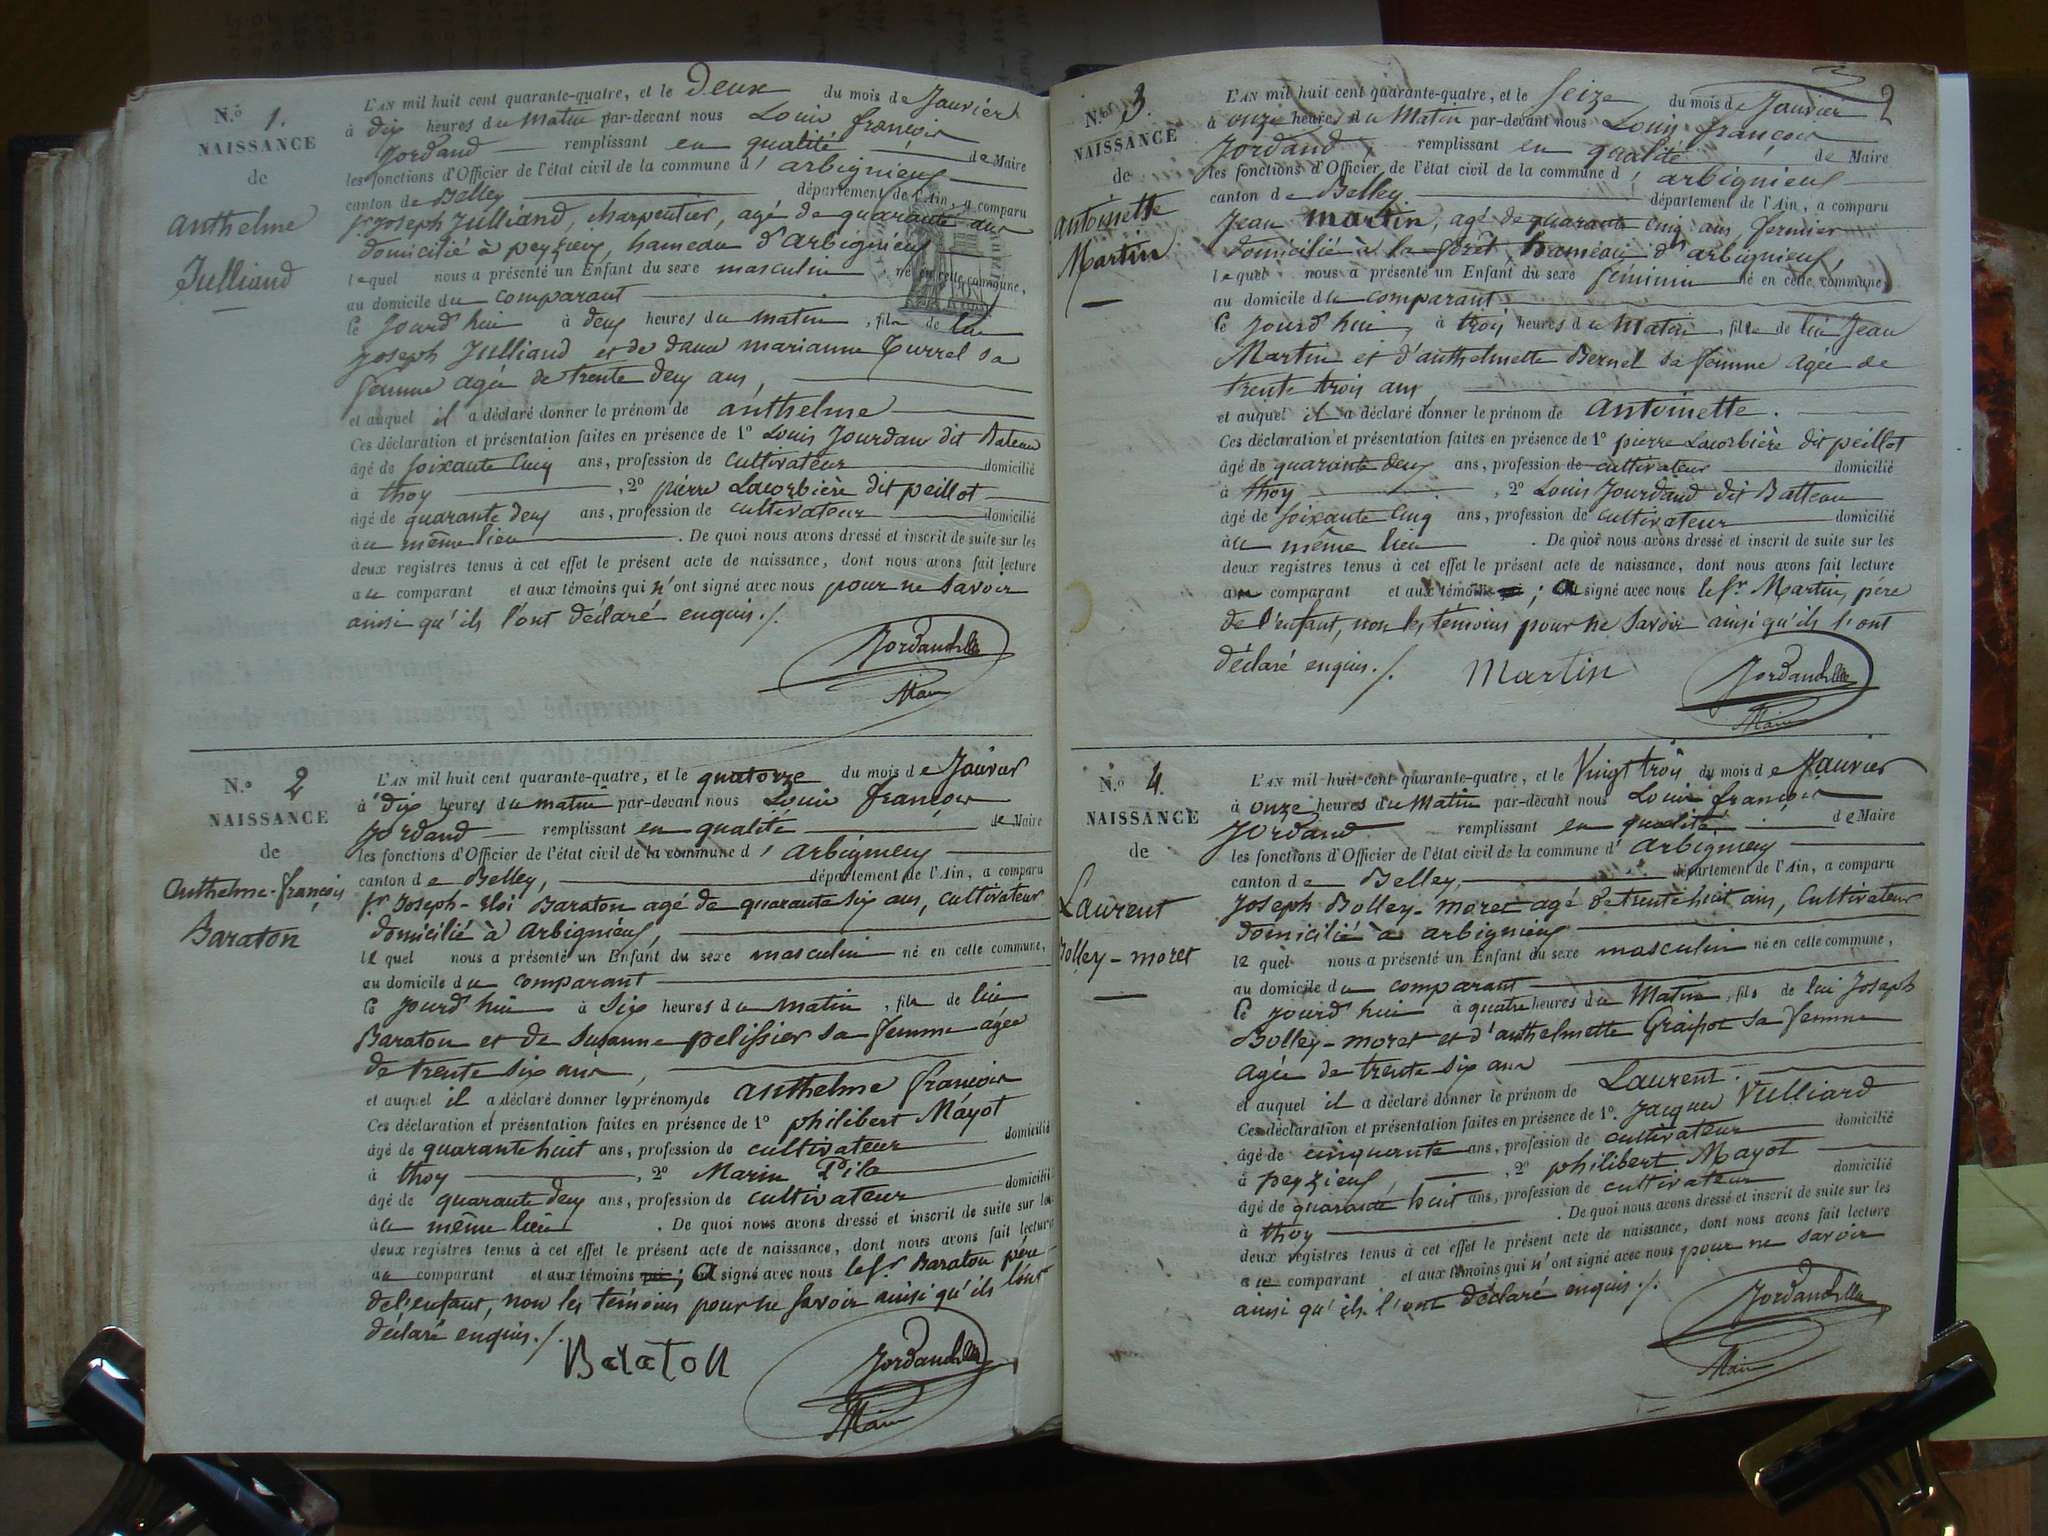 N.º 1.
NAISSANCE
de
Anthelme
Julliand
L'AN mil huit cent quarante-quatre, et le deux du mois de Janvier
à dix heures du Matin par-devant nous Louis françois
Jordand remplissant en qualité de Maire
les fonctions d'Officier de l'état civil de la commune d' arbignieux
canton de Belley département de l'Ain, a comparu
sr. Joseph Julliand, charpentier, agé de quarante ans
domicilié à peyzieux, hameau d'arbignieux
lequel nous a présenté un Enfant du sexe masculin né en cette commune,
au domicile du comparant
ce jourd'hui à deux heures du matin, fils de lui
joseph Julliand et de dame marianne Turrel sa
femme agée de trente deux ans,
et auquel il a déclaré donner le prénom de anthelme
Ces déclaration et présentation faites en présence de 1º Louis Jourdan dit Bateau
âgé de soixante cinq ans, profession de cultivateur domicilié
à thoy, 2º pierre Lacorbière dit peillot
âgé de quarante deux ans, profession de cultivateur domicilié
au même lieu. De quoi nous avons dressé et inscrit de suite sur les
deux registres tenus à cet effet le présent acte de naissance, dont nous avons fait lecture
au comparant et aux témoins qui n'ont signé avec nous pour ne savoir
ainsi qu'ils l'ont déclaré enquis ./.
Jordand
Maire
N.º 2
NAISSANCE
de
Anthelme-françois
Baraton
L'AN mil huit cent quarante-quatre, et le quatorze du mois de Janvier
à dix heures du matin par-devant nous Louis françois
Jordand remplissant en qualité de Maire
les fonctions d'Officier de l'état civil de la commune d' arbignieux
canton de Belley, département de l'Ain, a comparu
sr. Joseph-Eloi Baraton agé de quarante six ans, cultivateur
domicilié à arbignieux,
lequel nous a présenté un Enfant du sexe masculin né en cette commune,
au domicile du comparant
ce jourd'hui à six heures du matin, fils de lui
Baraton et de susanne pelissier sa femme agée
de trente six ans,
et auquel il a déclaré donner les prénoms de anthelme françois
Ces déclaration et présentation faites en présence de 1º philibert Mayot
âgé de quarante huit ans, profession de cultivateur domicilié
à thoy, 2º Marin Pila
âgé de quarante deux ans, profession de cultivateur domicilié
au même lieu. De quoi nous avons dressé et inscrit de suite sur les
deux registres tenus à cet effet le présent acte de naissance, dont nous avons fait lecture
au comparant et aux témoins qui; a signé avec nous le sr. Baraton père
de l'enfant, non les témoins pour ne savoir ainsi qu'ils l'ont
déclaré enquis ./.
Baraton
Jordand
Maire
2
N.º 3.
NAISSANCE
de
Antoinette
Martin
L'AN mil huit cent quarante-quatre, et le seize du mois de Janvier
à onze heures du Matin par-devant nous Louis françois
Jordand, remplissant en qualité de Maire
les fonctions d'Officier de l'état civil de la commune d' arbignieux
canton de Belley département de l'Ain, a comparu
Jean Martin, agé de quarante cinq ans, fermier
domicilié à la forêt, hameau d'arbignieux,
lequel nous a présenté un Enfant du sexe féminin né en cette commune,
au domicile du comparant
ce jourd'hui, à trois heures du Matin, fille de lui Jean
Martin et d'anthelmette Bernel sa femme agée de
trente trois ans,
et auquel il a déclaré donner le prénom de antoinette.
Ces déclaration et présentation faites en présence de 1º pierre Lacorbière dit peillot
âgé de quarante deux ans, profession de cultivateur domicilié
à thoy, 2º Louis Jourdand dit Batteau
âgé de soixante cinq ans, profession de cultivateur domicilié
au même lieu. De quoi nous avons dressé et inscrit de suite sur les
deux registres tenus à cet effet le présent acte de naissance, dont nous avons fait lecture
au comparant et aux témoins; a signé avec nous le sr. Martin, père
de l'enfant, non les témoins pour ne savoir ainsi qu'ils l'ont
déclaré enquis ./. Martin
Jordand
Maire
N.º 4.
NAISSANCE
de
Laurent
Bolley-moret
L'AN mil huit cent quarante-quatre, et le Vingt trois du mois de Janvier
à onze heures du Matin par-devant nous Louis françois
Jordand remplissant en qualité de Maire
les fonctions d'Officier de l'état civil de la commune d' arbignieux
canton de Belley, département de l'Ain, a comparu
joseph Bolley-moret agé de trente huit ans, cultivateur
domicilié à arbignieux
lequel nous a présenté un Enfant du sexe masculin né en cette commune,
au domicile du comparant
ce jourd'hui à quatre heures du Matin, fils de lui Joseph
Bolley-moret et d'anthelmette sa femme
agée de trente-six ans
et auquel il a déclaré donner le prénom de Laurent.
Ces déclaration et présentation faites en présence de 1º. Jacques Vulliard
âgé de cinquante ans, profession de cultivateur domicilié
à peyzieux, 2º philibert Mayot
âgé de quarante huit ans, profession de cultivateur domicilié
à thoy. De quoi nous avons dressé et inscrit de suite sur les
deux registres tenus à cet effet le présent acte de naissance, dont nous avons fait lecture
au comparant et aux témoins qui n'ont signé avec nous pour ne savoir
ainsi qu'ils l'ont déclaré enquis ./.
Jordand
Maire